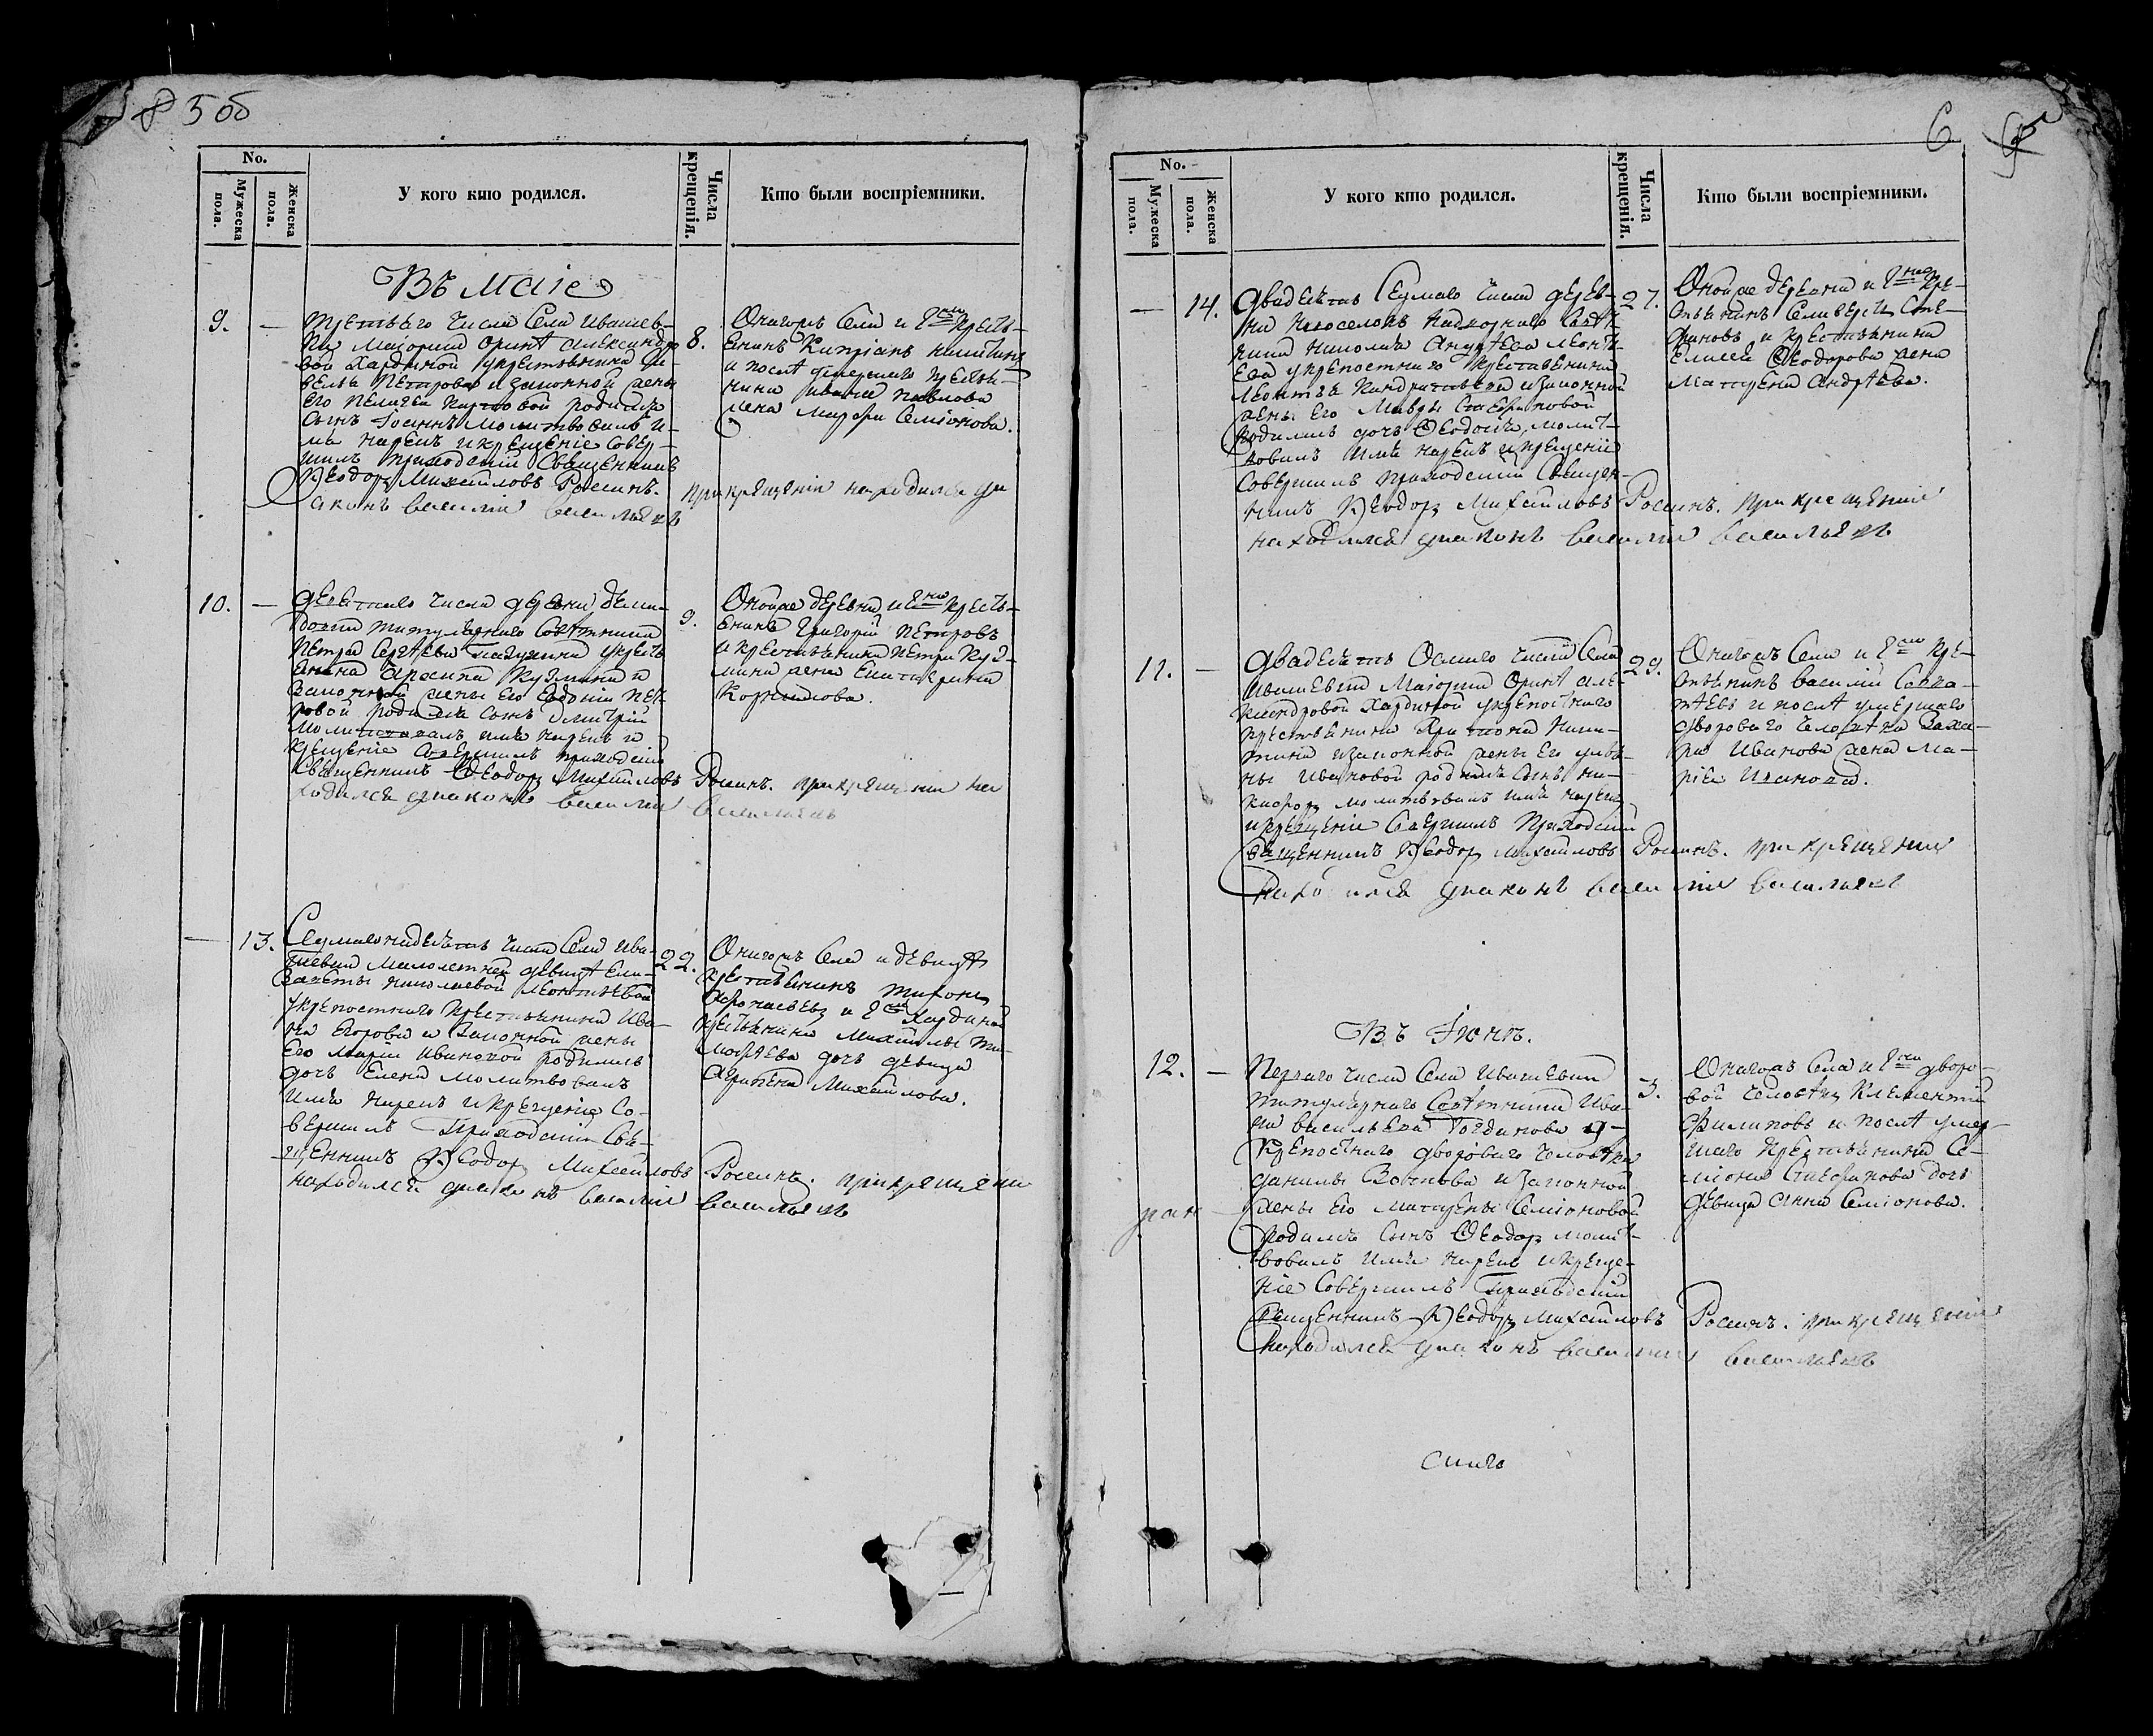 8 5 об
No.
Мужеска пола.
Женска пола.
У кого кто родился.
Числа крещенія.
Кто были воспріемники.
Въ Маіе
9. —
Третьяго числа Села Ивашев-
ки Маіорши Орины Александро
вой Хардиной укрестьянина
Петрова и законной жены
его Пелагеи Карповой родился
сынъ Іоаннъ молитвовалъ и-
мя нарекъ и крещеніе совер-
шилъ приходскій Священникъ
Ѳеодоръ Михайловъ Росинъ. при крещеніи находился діа
аконъ Василій Васильевъ
8.
Оногожъ Села и Гжи кресть-
янинъ Кипріанъ Никитинъ
и послѣ умершаго крестья-
нина Ивана Павлова
жена Марфа Семіонова.
10. —
Девятаго числа деревни
титулярнаго Совѣтника
Петра Сергѣева укресть
янина Архипа Кузмина и
законной жены его Евдокіи Пет-
ровой родился сынъ Дмитрій
молитвовалъ имя нарекъ и
крещеніе совершилъ приходскій
Священникъ Ѳеодоръ Михайловъ Росинъ. при крещеніи на
ходился діаконъ Василій Васильевъ
9.
Оной же деревни и Гна кресть-
янинъ Григорій Петровъ
и крестьянина Петра Куз-
мина жена Екатерина
Корнилова.
— 13.
Седмагонадесять числа Села Ива-
шевки малолетней девицы Ели-
заветы Николаевой Леонтьевой
укрепостнаго крестьянина Ива-
на Егорова и законной жены
его Маріи Ивановой родилась
дочь Елена молитвовалъ
имя нарекъ и крещеніе со-
вершилъ Приходскій Свя-
щенникъ Ѳеодоръ Михайловъ Росинъ. при крещеніи
находился діаконъ Василій Васильевъ
22.
Оногожъ Села и девицы
крестьянинъ Тихонъ
Афонасьевъ и Гжи Хардиной
крестьянина Михайлы Ти-
мофѣева дочь девица
Агрипена Михайлова.
6
No.
Мужеска пола.
Женска пола.
У кого кто родился.
Числа крещенія.
Кто были воспріемники.
— 14.
Двадесять Седмаго числа дерев-
ни Новоселокъ Надворнаго Совѣт-
ника Николая Андрѣева Леонть-
ева укрепостнаго крестьянина
Леонтья Кондратьева и законной
жены его Мавры Стефановой
родилась дочь Ѳеодосія, молит-
вовалъ имя нарекъ и крещеніе
совершилъ приходскій Священ-
никъ Ѳеодоръ Михайловъ Росинъ. при крещеніи
находился діаконъ Василій Васильевъ
27.
Оной же деревни и Гна кре-
стьянинъ Селиверстъ Сте-
фановъ и крестьянина
Елисея Ѳеодорова жена
Матрена Андрѣева.
11. —
Двадесять Осмаго числа Села
Ивашевки Маіорши Орины Але-
ксандровой Хардиной укрепостнаго
крестьянина Харитона Ники-
тина и законной жены его Улья-
ны Ивановой родился сынъ Ни-
кифоръ молитвовалъ имя нарекъ
и крещеніе совершилъ Приходскій
Священникъ Ѳеодоръ Михайловъ Росинъ. при крещеніи
находился діаконъ Василій Васильевъ
29.
Оногожъ Села и Гжи кре-
стьянинъ Василій Савва-
тѣевъ и послѣ умершаго
двороваго человѣка Заха-
ра Иванова жена Ма-
рія Иванова.
Въ Іюнѣ.
12. —
Перваго числа Села Ивашевки
титулярнаго Совѣтника Ива-
на Васильева Богданова у-
крепостнаго двороваго человѣка
Данилы Волкова и законной
жены его Матрены Семіоновой
родился сынъ Ѳеодоръ молит-
вовалъ имя нарекъ и креще-
ніе совершилъ Приходскій
Священникъ Ѳеодоръ Михайловъ Росинъ. при крещеніи
находился діаконъ Василій Васильевъ
3.
Оногожъ Села и Гна дворо-
вой человѣкъ Клементій
Филиповъ и послѣ умер-
шаго крестьянина Се-
міона Стефанова дочь
девица Анна Семіонова.